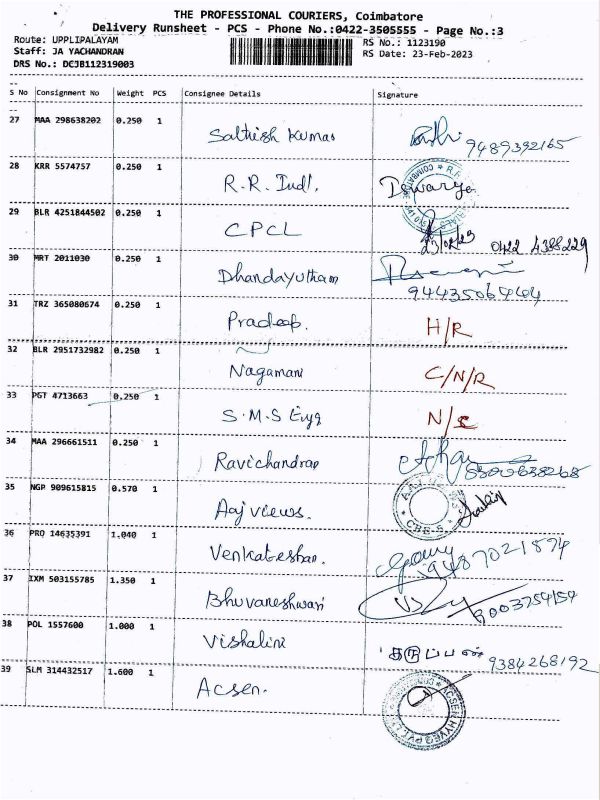 THE PROFESSIONAL COURIERS, Coimbatore
Delivery Runsheet - PCS - Phone No.:0422-3505555 - Page No.:3
Route: UPPLIPALAYAM RS No.: 1123190
Staff: JA YACHANDRAN RS Date: 23-Feb-2023
DRS No.: DCJB112319003
S No Consignment No Weight PCS Consignee Details Signature
27 MAA 298638202 0.250 1 Sathish Kumar 9489392165
28 KRR 5574757 0.250 1 R.R. Indl. Iswarya
29 BLR 4251844502 0.250 1 CPCL 23/02/23 0422 4388229
30 MRT 2011030 0.250 1 Dhandayutham
31 TRZ 365080674 0.250 1 Pradeep. H/R
32 BLR 2951732982 0.250 1 Nagamani C/N/R
33 PGT 4713663 0.250 1 S.M.S Engg
34 MAA 296661511 0.250 1 Ravichandran
35 NGP 909615815 0.570 1 Aaj views.
36 PRQ 14635391 1.040 1 Venkateshan. 9487021594
37 IXM 503155785 1.350 1 Bhuvaneshwari 9003754154
38 POL 1557600 1.000 1 Vishalini 9384268192
39 SLM 314432517 1.600 1 Acsen.